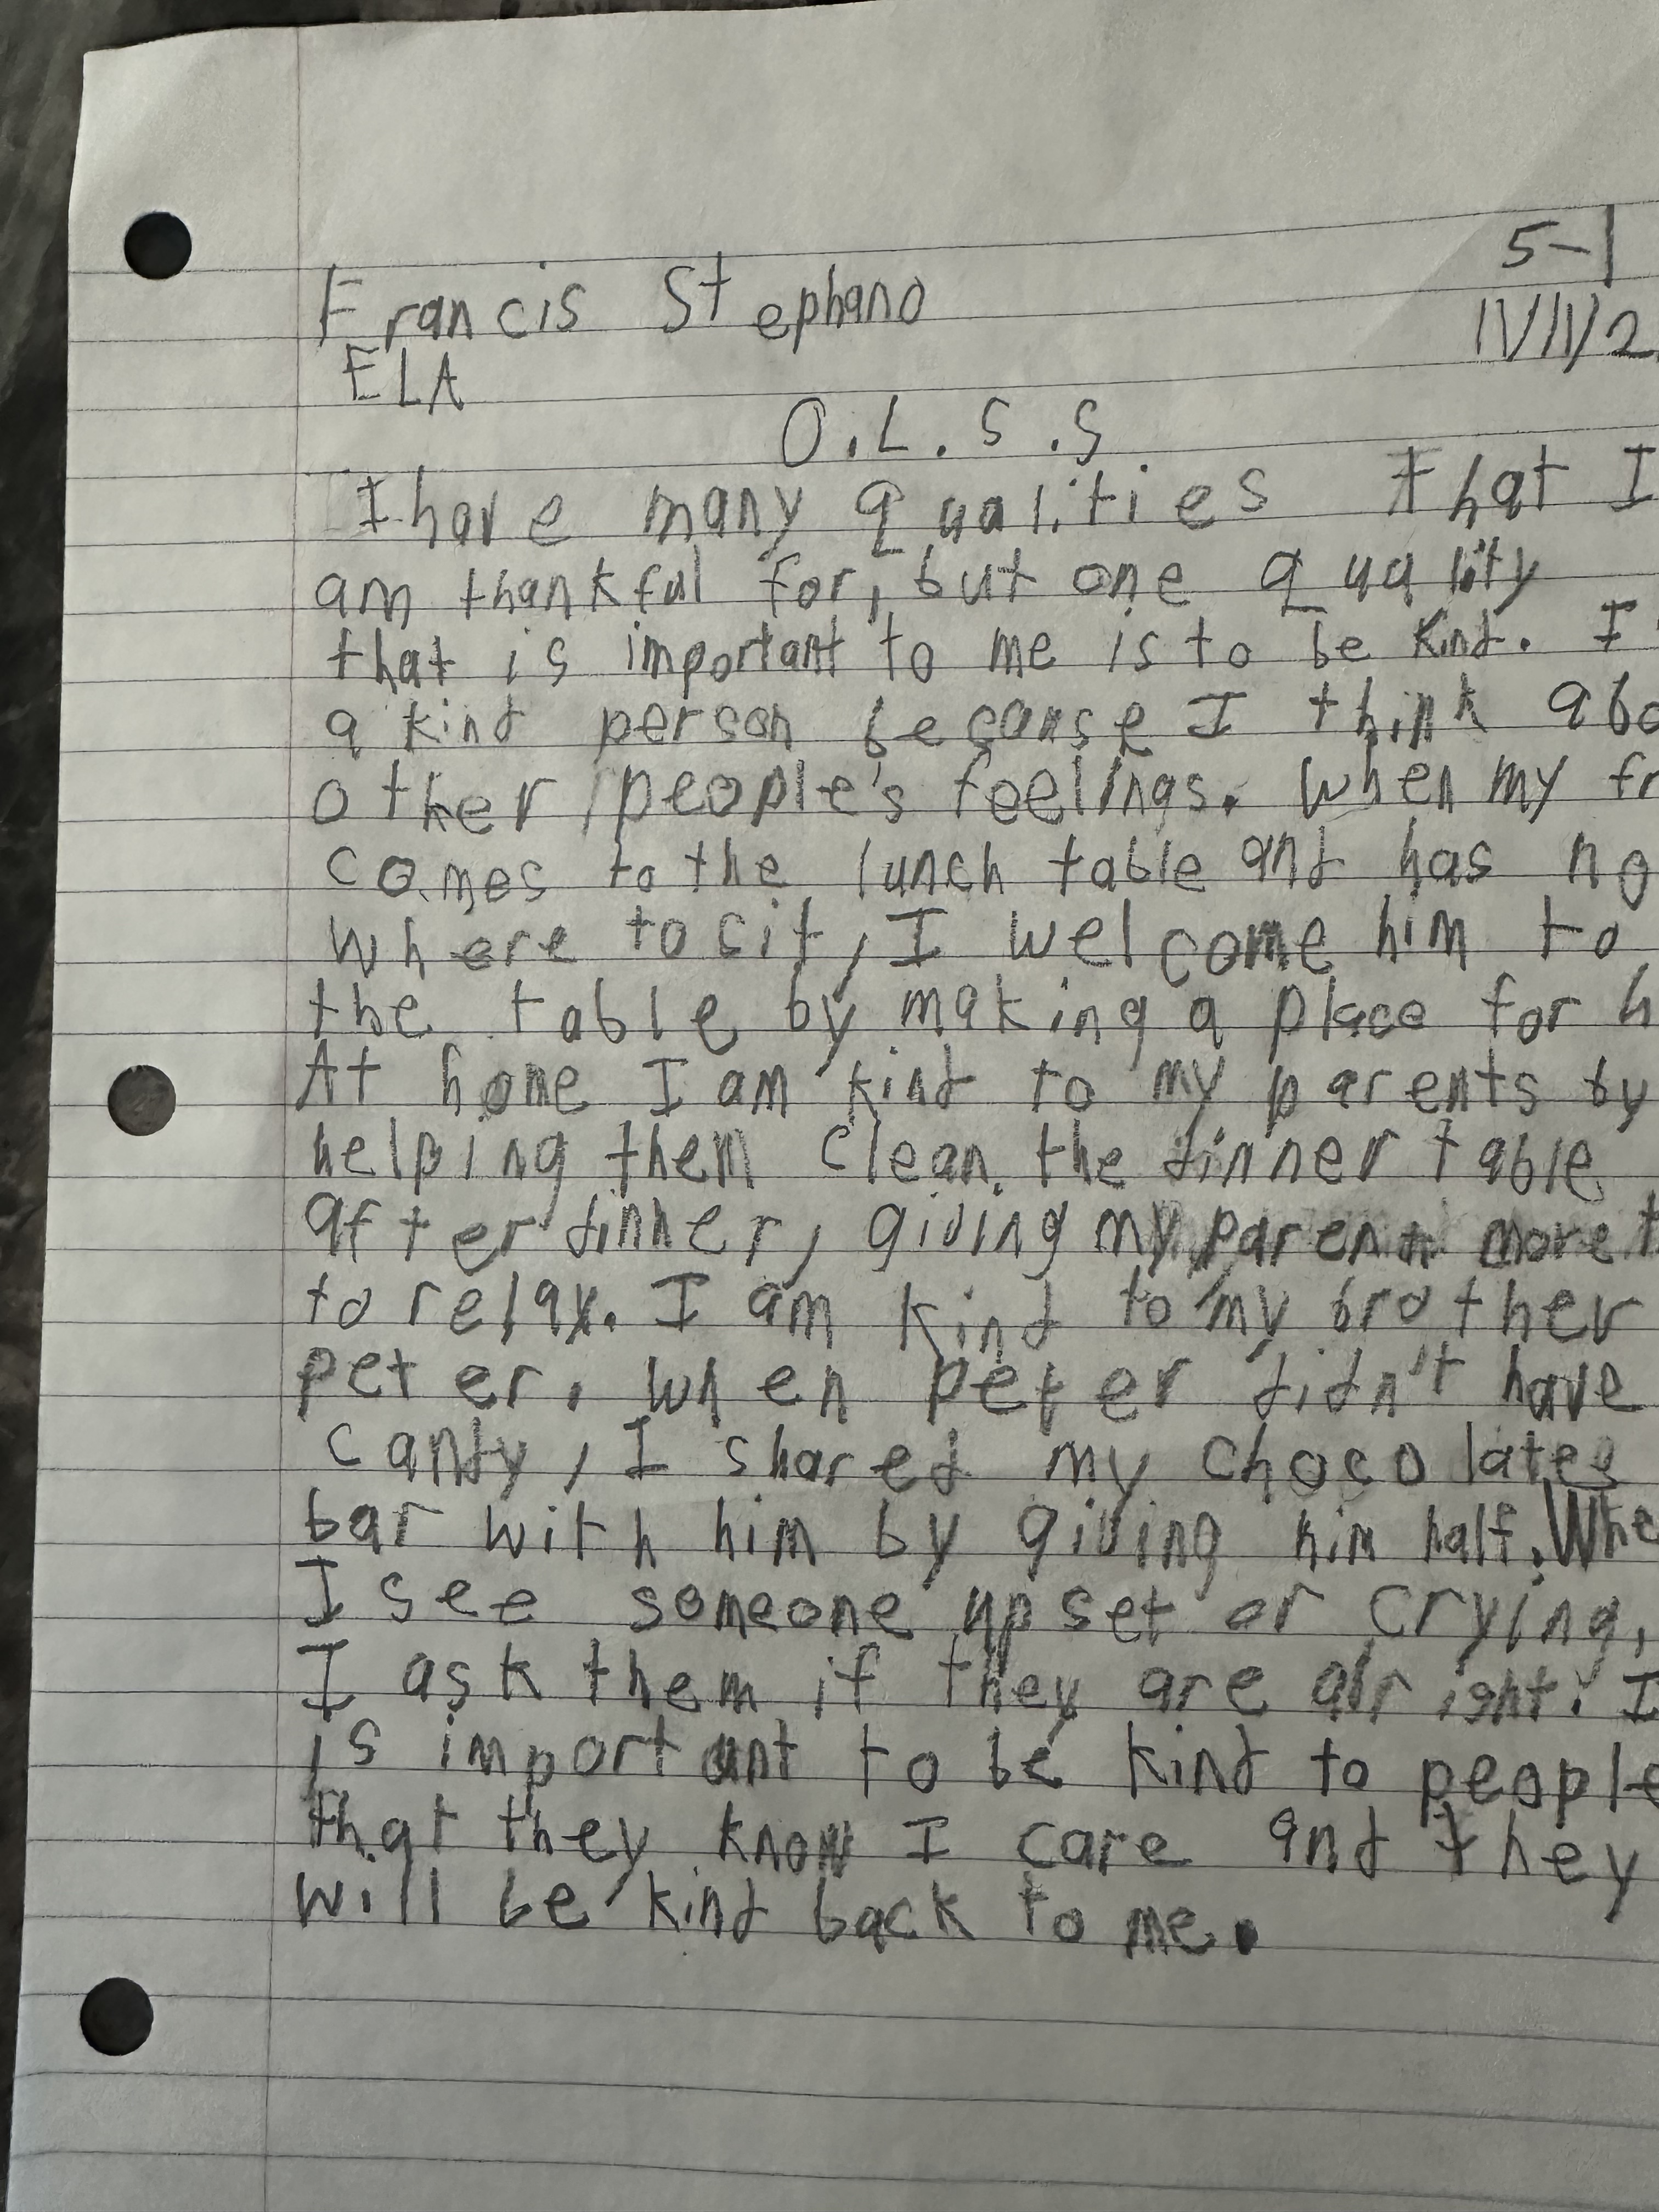 5-1
Francis Stephano
11/11/2
ELA
O.L.S.S
I have many qualities that I
am thankful for, but one quality
that is important to me is to be kind. I
a kind person because I think abo
other people's feelings. When my fr
comes to the lunch table and has no
where to sit, I welcome him to
the table by making a place for h
At home I am kind to my parents by
helping them clean the dinner table
after dinner, giving my parent more t
to relax. I am kind to my brother
peter. when peter didn't have
candy, I shared my chocolates
bar with him by giving him half. Whe
I see someone upset or crying,
I ask them if they are alright. I
is important to be kind to people
that they know I care and they
will be kind back to me.